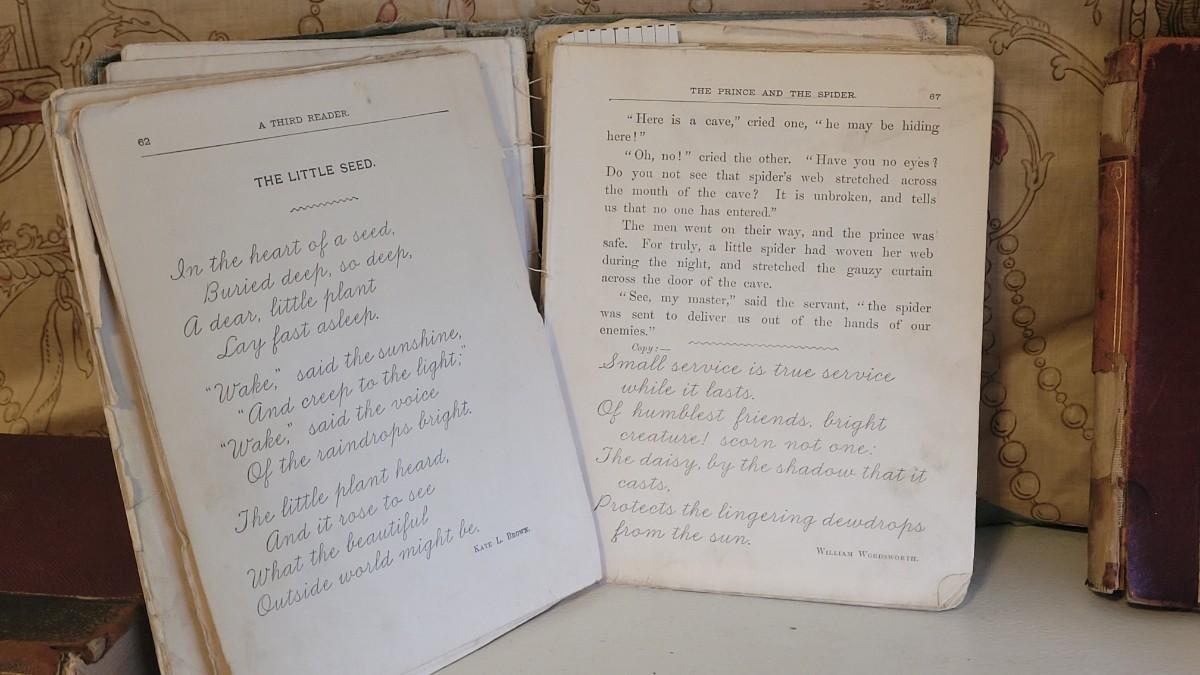 62
A THIRD READER.
THE LITTLE SEED.
In the heart of a seed,
Buried deep, so deep,
A dear, little plant
Lay fast asleep.
"Wake," said the sunshine,
"And creep to the light;"
"Wake," said the voice
Of the raindrops bright.
The little plant heard,
And it rose to see
What the beautiful
Outside world might be.
KATE L. BROWN.
THE PRINCE AND THE SPIDER. 67
"Here is a cave," cried one, "he may be hiding
here!"
"Oh, no!" cried the other. "Have you no eyes?
Do you not see that spider's web stretched across
the mouth of the cave? It is unbroken, and tells
us that no one has entered."
The men went on their way, and the prince was
safe. For truly, a little spider had woven her web
during the night, and stretched the gauzy curtain
across the door of the cave.
"See, my master," said the servant, "the spider
was sent to deliver us out of the hands of our
enemies."
Copy:—
Small service is true service
while it lasts.
Of humblest friends, bright
creature! scorn not one:
The daisy, by the shadow that it
casts,
Protects the lingering dewdrops
from the sun.
WILLIAM WORDSWORTH.